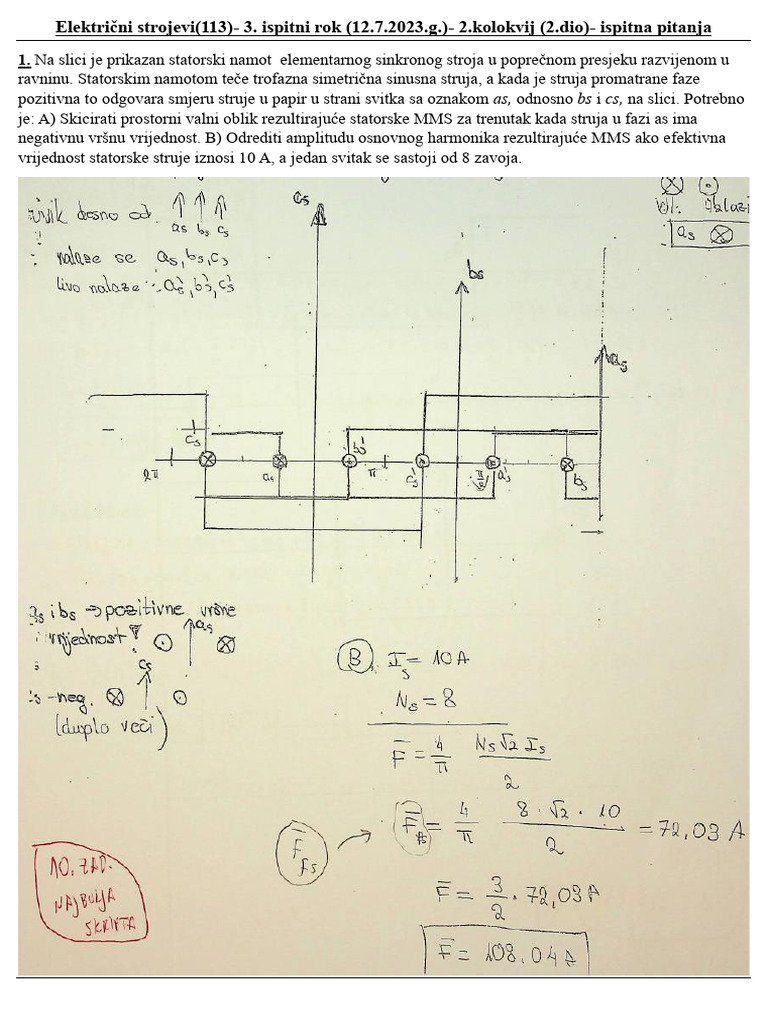 Električni strojevi(113)- 3. ispitni rok (12.7.2023.g.)- 2.kolokvij (2.dio)- ispitna pitanja
1. Na slici je prikazan statorski namot  elementarnog sinkronog stroja u poprečnom presjeku razvijenom u
ravninu. Statorskim namotom teče trofazna simetrična sinusna struja, a kada je struja promatrane faze
pozitivna to odgovara smjeru struje u papir u strani svitka sa oznakom as, odnosno bs i cs, na slici. Potrebno
je: A) Skicirati prostorni valni oblik rezultirajuće statorske MMS za trenutak kada struja u fazi as ima
negativnu vršnu vrijednost. B) Odrediti amplitudu osnovnog harmonika rezultirajuće MMS ako efektivna
vrijednost statorske struje iznosi 10 A, a jedan svitak se sastoji od 8 zavoja.
desno od
as bs cs
nalaze se as, bs, cs
livo nalaze as', bs', cs'
cs
bs
as
as ⊗
cs
bs'
2π
as
π
cs'
as'
bs
as i bs → pozitivne vršne
vrijednost
as
cs
-neg.
(duplo veći)
B, Is = 10 A
Ns = 8
F = 4/π Ns√2 Is / 2
Ffs
Ffs = 4/π 8·√2·10 / 2 = 72,03 A
F = 3/2 · 72,03 A
F = 108.04 A
10. ZAD.
NAJBOLJA
SKRIPTA